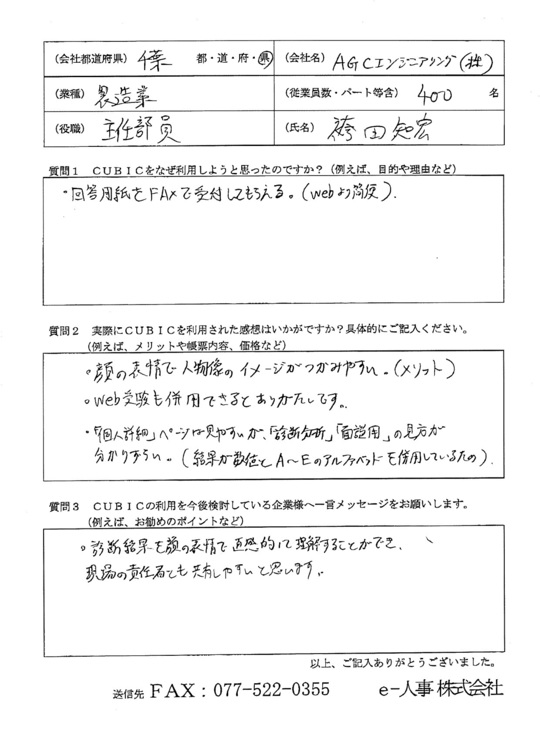 (会社都道府県) 千葉 都・道・府・県 (会社名) AGCエンジニアリング(株)
(業種) 製造業 (従業員数・パート等含) 400 名
(役職) 主任部員 (氏名) 袴田知宏
質問1 CUBICをなぜ利用しようと思ったのですか?(例えば、目的や理由など)
・回答用紙をFAXで受付してもらえる。(webより簡便).
質問2 実際にCUBICを利用された感想はいかがですか?具体的にご記入ください。
(例えば、メリットや帳票内容、価格など)
。顔の表情で人物像のイメージがつかみやすい。(メリット)
。web受験も併用できるとありがたいです。
・「個人詳細」ページは見やすいが、「診断分析」「面談用」の見方が
分かりずらい。(結果が数値とA〜Eのアルファベットを併用しているため).
質問3 CUBICの利用を今後検討している企業様へ一言メッセージをお願いします。
(例えば、お勧めのポイントなど)
。診断結果を顔の表情で直感的に理解することができ、
現場の責任者とも共有しやすいと思います。
以上、ご記入ありがとうございました。
送信先 FAX:077-522-0355 e-人事株式会社